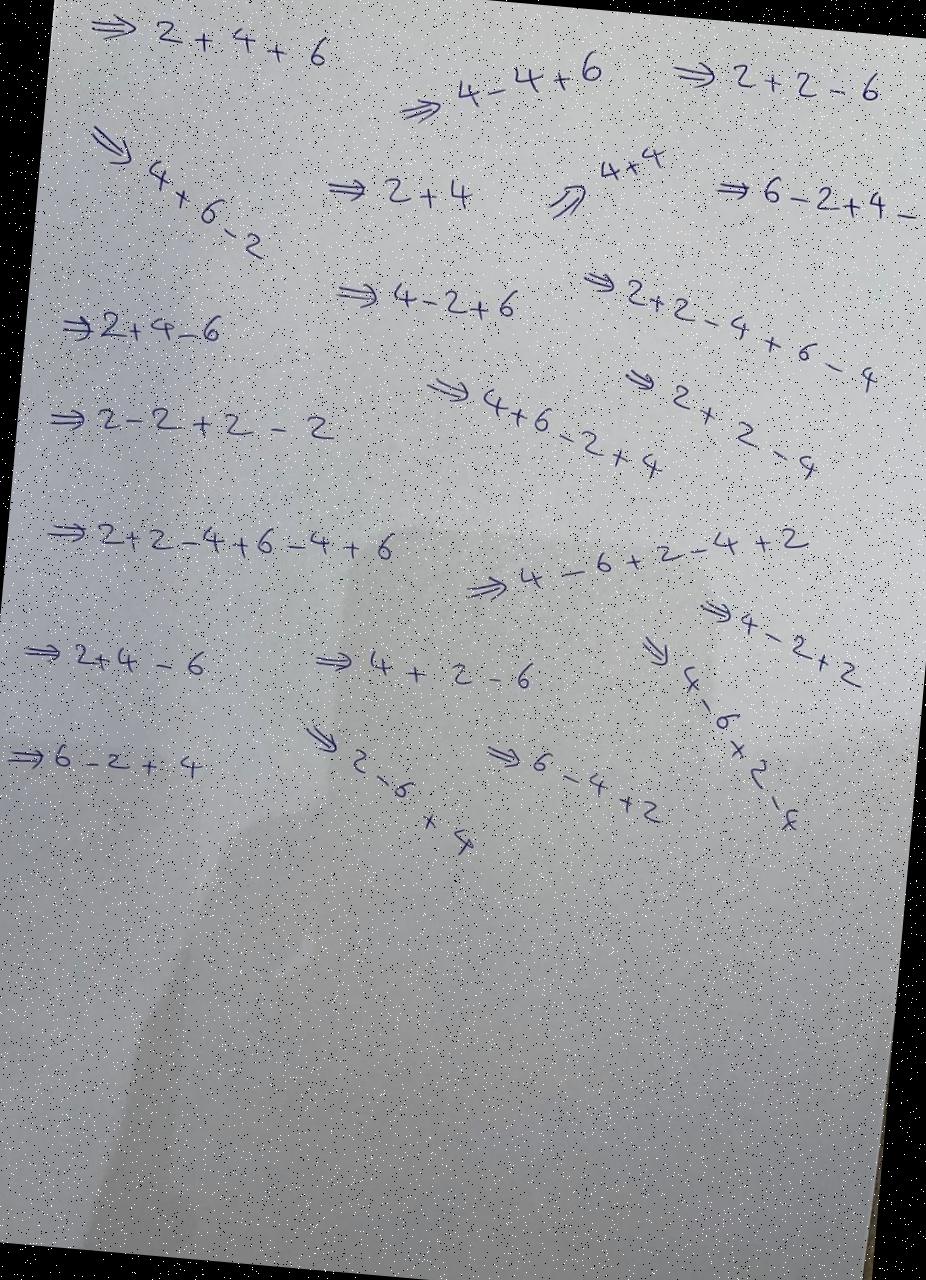 ⇒ 2 + 4 + 6
⇒ 4 - 4 + 6
⇒ 2 + 2 - 6
⇒ 4 + 6 - 2
⇒ 2 + 4
⇒ 4 + 4
⇒ 6 - 2 + 4 -
⇒ 2 + 4 - 6
⇒ 4 - 2 + 6
⇒ 2 + 2 - 4 + 6 - 4
⇒ 2 - 2 + 2 - 2
⇒ 4 + 6 - 2 + 4
⇒ 2 + 2 - 4
⇒ 2 + 2 - 4 + 6 - 4 + 6
⇒ 4 - 6 + 2 - 4 + 2
⇒ 4 - 2 + 2
⇒ 2 + 4 - 6
⇒ 4 + 2 - 6
⇒ 4 - 6 + 2 - 4
⇒ 6 - 2 + 4
⇒ 2 - 6 + 4
⇒ 6 - 4 + 2